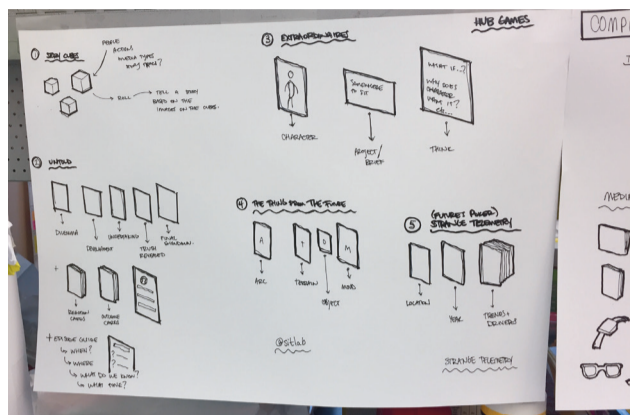 HUB GAMES
① STORY CUBES
PEOPLE
ACTIONS
MEDIA TYPES
ROLL
TELL A STORY
BASED ON THE
IMAGES ON THE CUBE.
② UNTOLD
DILEMMA
DEVELOPMENT
UNDERTAKING
TRUTH
REVEALED
FINAL
SHOWDOWN.
+
REACTION
CARDS
OUTCOME
CARDS
+ EPISODE GUIDE
WHEN?
WHERE
WHAT DO WE KNOW?
WHAT TONE?
?
?
③ EXTRAORDINAIRES
CHARACTER
SOMEWHERE
TO SIT
PROJECT/
BRIEF
WHAT IF..?
WHY DOES
CHARACTER
WANT IT?
ETC...
THINK
④ THE THING FROM THE FUTURE
A
T
O
M
ARC
TERRAIN
OBJECT
MOOD
@sitlab
⑤ (FUTURES POKER)
STRANGE TELEMETRY
LOCATION
YEAR
TRENDS +
DRIVERS
STRANGE TELEMETRY
COMP
MEDI